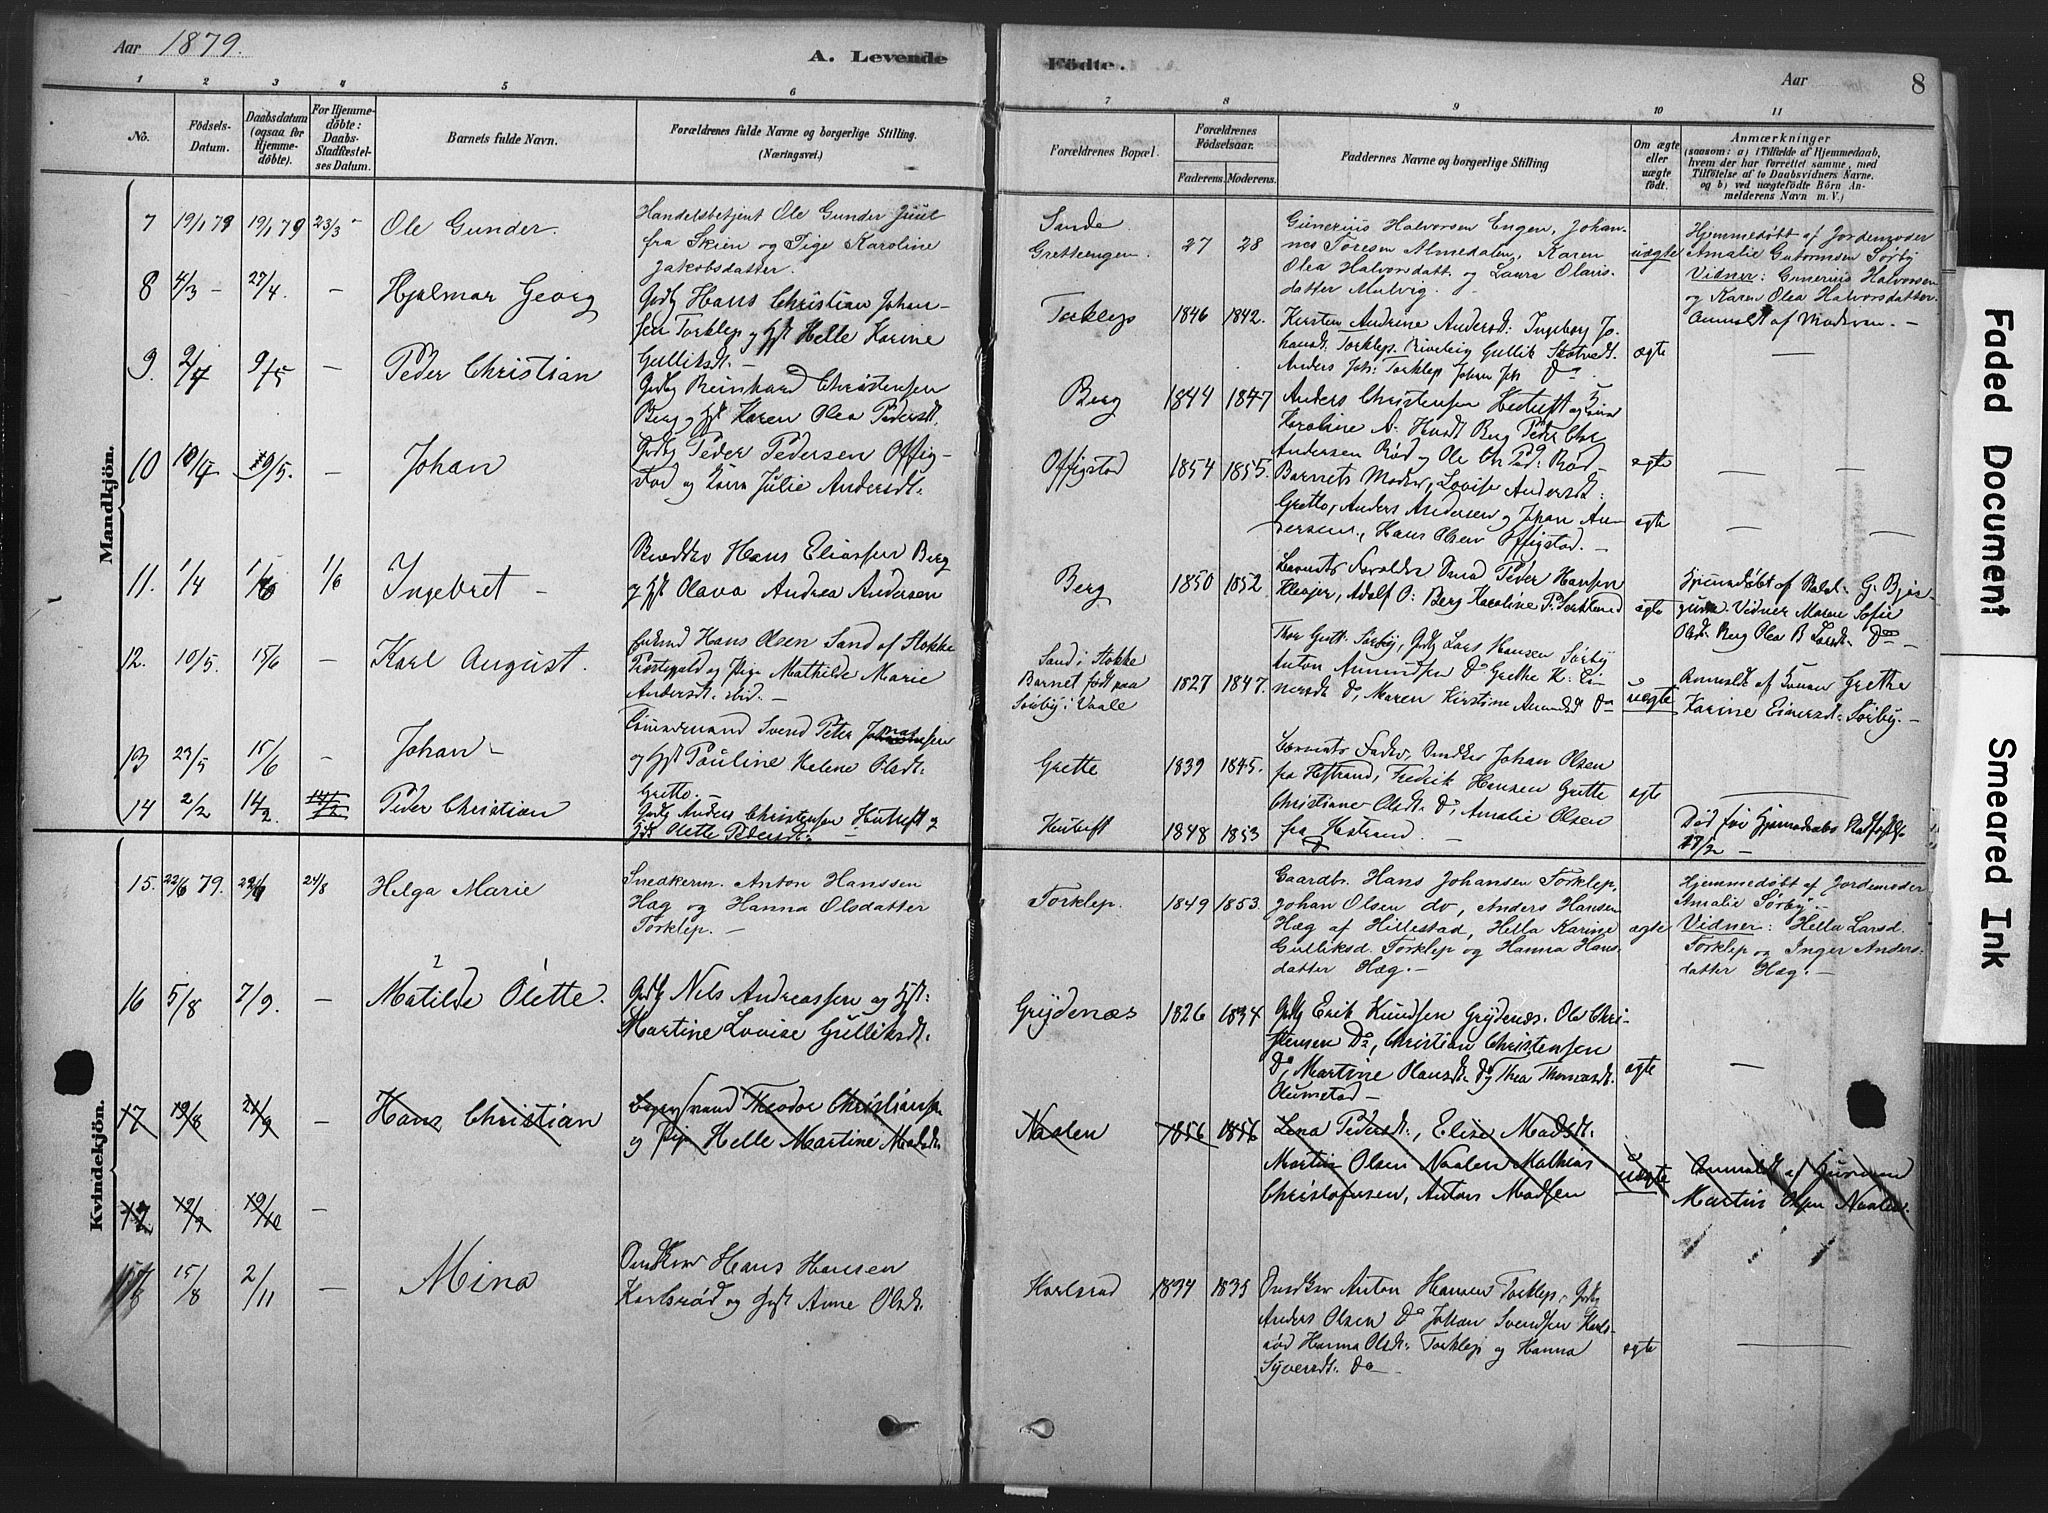 Aar 1879.
A. Levende
Födte.
Aar
8
1
2
3
4
5
6
7
8
9
10
11
No.
Födsels-
Datum.
Daabsdatum
(ogsaa for
Hjemme-
döbte).
For Hjemme-
döbte:
Daabs-
Stadfæstel-
ses Datum.
Barnets fulde Navn.
Forældrenes fulde Navne og borgerlige Stilling.
(Næringsvei.)
Forældrenes Bopæl.
Forældrenes
Födselsaar.
Faderens.
Moderens.
Faddernes Navne og borgerlige Stilling
Om ægte
eller
uægte
født.
Anmærkninger
(saasom: a) i Tilfælde af Hjemmedaab,
hvem der har forrettet samme, med
Tilföielse af to Daabsvidners Navne.
og b) ved uægtefödte Börn An-
melderens Navn m. V.)
Mandkjön.
7 19/1 79 19/1 79 23/3 Ole Gunder.
Handelsbetjent Ole Gunder Juul
fra Skien og Pige Karoline
Jakobsdatter.
Sande
Gretteengen
27 28
Gunerius Halvorsen Engen, Johan-
nes Toresen Almedalen, Karen
Olea Halvorsdatt. og Laura Olavis-
datter Mulvig.
uægte
Hjemmedøbt af Jordemoder
Amalie Guttormsen Sørby
Vidner: Gunerius Halvorsen
og Karen Olea Halvorsdatter.
Anmeldt af Moderen. —
8 4/3 — 27/4. — Hjalmar Georg
Gbrg Hans Christian Johan-
sen Torklep og Hst Helle Karine
Gulliksdt. —
Torklep
1846 1842.
Kirsten Andrine Andersd: Ingeborg Jo-
hansdt: Torklep. Gullik Skotvedt.
Anders Joh: Torklep Johan Joh Do
ægte
—
9. 9/5 — Peder Christian
Gbrg Reinhard Christensen
Berg og Hst Karen Olea Pedersdt.
Berg
1844 1847
Anders Christensen
Karoline A: Berg Peder Chr
Andersen Rød og Ole Chr Ped: Rød —
ægte
—
10 — Johan
Gbrg Peder Pedersen Offig-
stad og Kone Julie Andersdt.
Offigstad
1854 1855.
Barnets Moder, Lovise Andersdt:
Grette, Anders Andersen og Johan An-
dersen, Hans Olsen Offigstad. —
ægte
—
11. 1/4 1/6 1/6 Ingebret —
Hans Eliassen Berg
og Hst Olava Andrea Andersen
Berg
1850 1852
Barnets Forældre Peder Hansen
Adolf O: Berg Karoline P:
ægte
Hjemmedøbt af
Vidner Maren Sofie
Olsdt. Berg Olea B Larsdt. Do —
12. 10/5. 15/6 — Karl August.
Hans Olsen Sand af Stokke
Præstegjeld og Pige Mathilde Marie
Andersdt. ibid. —
Sand i Stokke
Barnet født paa
Sørby i Vaale
1827 1847.
Thor Gutt. Sørby, Gbrg Lars Hansen Sørby
Anton Amundsen Do Grethe K: Ei-
nersdt Do, Maren Kirstine Amundsdt Do
uægte
Anmeldt af Konen Grethe
Karine Einersdt. Sørby. —
13 23/5 15/6 — Johan —
Svend Peter
og Hst Pauline Helene Olsdt.
Grette. —
Grette
1839 1845.
Barnets Fader, Johan Olsen
fra Hestrand, Fredrik Hansen Grette
Christiane Olsdt Do, Amalie Olsen
fra Hestrand. —
ægte
14 2/2 14/2. Peder Christian
Gbrg Anders Christensen Hutuft og
Hst Olette Pedersdt. —
Hutuft
1848 1853
Død før Hjemmedaabs Stadfæstelse
—
Kvindekjön.
15. 22/6 79. 24/8 Helga Marie
Snedkerm. Anton Hanssen
Hæg og Hanna Olsdatter
Torklep. —
Torklep.
1849 1853.
Gaardbr. Hans Johansen Torklep,
Johan Olsen do, Anders Hansen
Hæg af Hillestad, Hella Karine
Gulliksd. Torklep og Hanna Hans-
datter Hæg. —
ægte
Hjemmedøbt af Jordemoder
Amalie Sørby. —
Vidner: Hella Larsd.
Torklep og Inger Anders-
datter Hæg. —
16 5/8 7/9. — Matilde Olette.
Gbrg Nels Andreassen og Hst:
Martine Lovise Gulliksdt.
Grydenæs
1826 1834
Gbrg Erik Knudsen Grydenæs. Ole Chri-
stensen Do, Christian Christensen
Do, Martine Olausdt. Do, Thea Thomasdt.
Olumstad —
ægte
—
17 19/8 21/9 — Hans Christian
Theodor Christiansen
og Pige Helle Martine Madsdt.
Naalen
1856 1856
Lena Pedersdt., Elise Madsdt.
Martin Olsen Naalen Mathias
Christofersen, Anton Madsen
uægte
Anmeldt af Husmand
Martin Olsen Naalen.
17 19/10 —
15/8 2/11 — Mina
Hans Hansen
Karlsrød og Hst Anne Olsdt.
Karlsrød
1834 1835
Anton Hansen Torklep, Gbrg
Anders Olsen Do Johan Svendsen Karls-
rød Hanna Olsdt: Torklep og Hanna
Syversdt. Do —
ægte
—
Faded Document
Smeared Ink